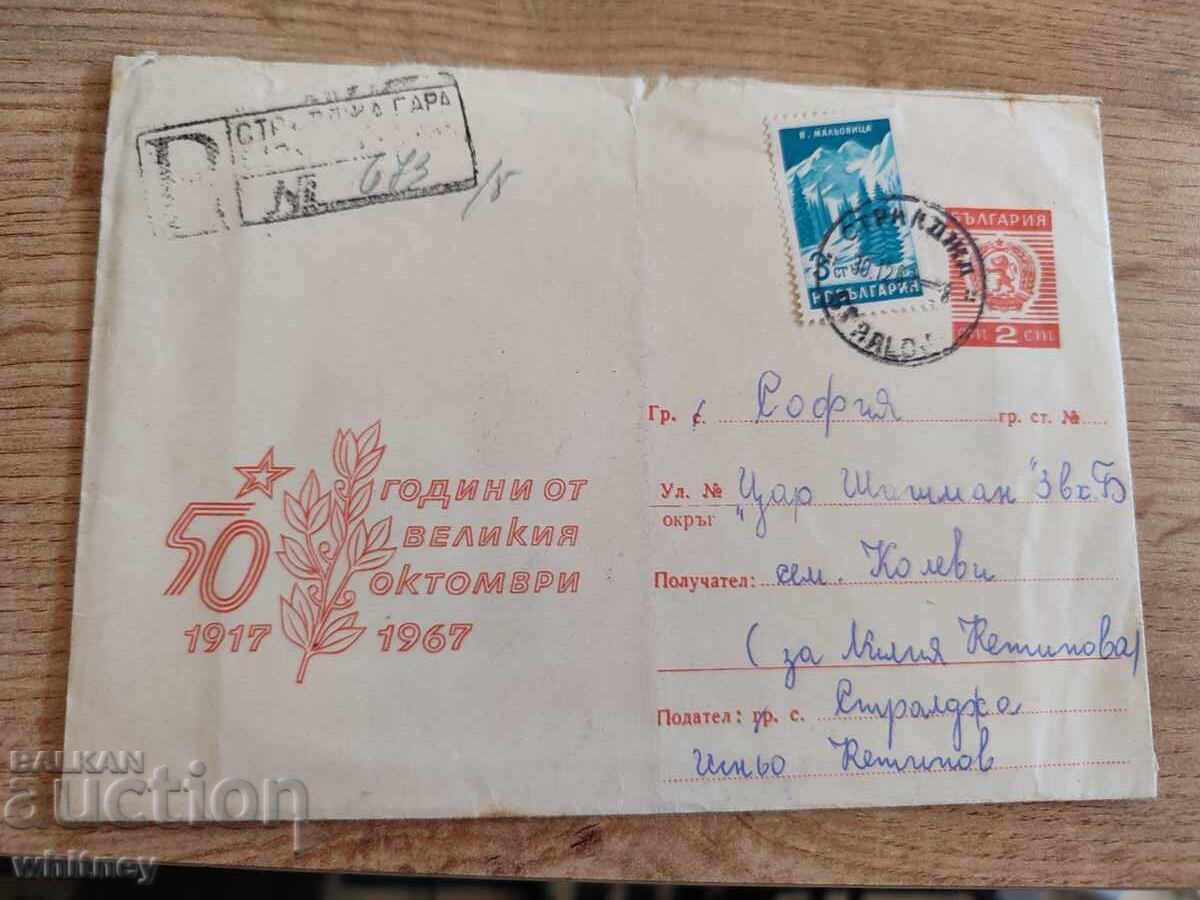 R
ГАРА
№ 673 /8
В. МАЛЬОВИЦА
3 СТ
Н.Р. БЪЛГАРИЯ
СТРАЛДЖА
БЪЛГАРИЯ
2 cm
Гр. с. София гр. ст. №
Ул. № "Цар Шишман" 3 вх. Б
окръг
Получател: сем. Колеви
(за Лилия Кетипова)
Подател: гр. с. Стралджа
Иньо Кетипов
50 ГОДИНИ ОТ
ВЕЛИКИЯ
ОКТОМВРИ
1917 1967
BALKAN
auction
whitney